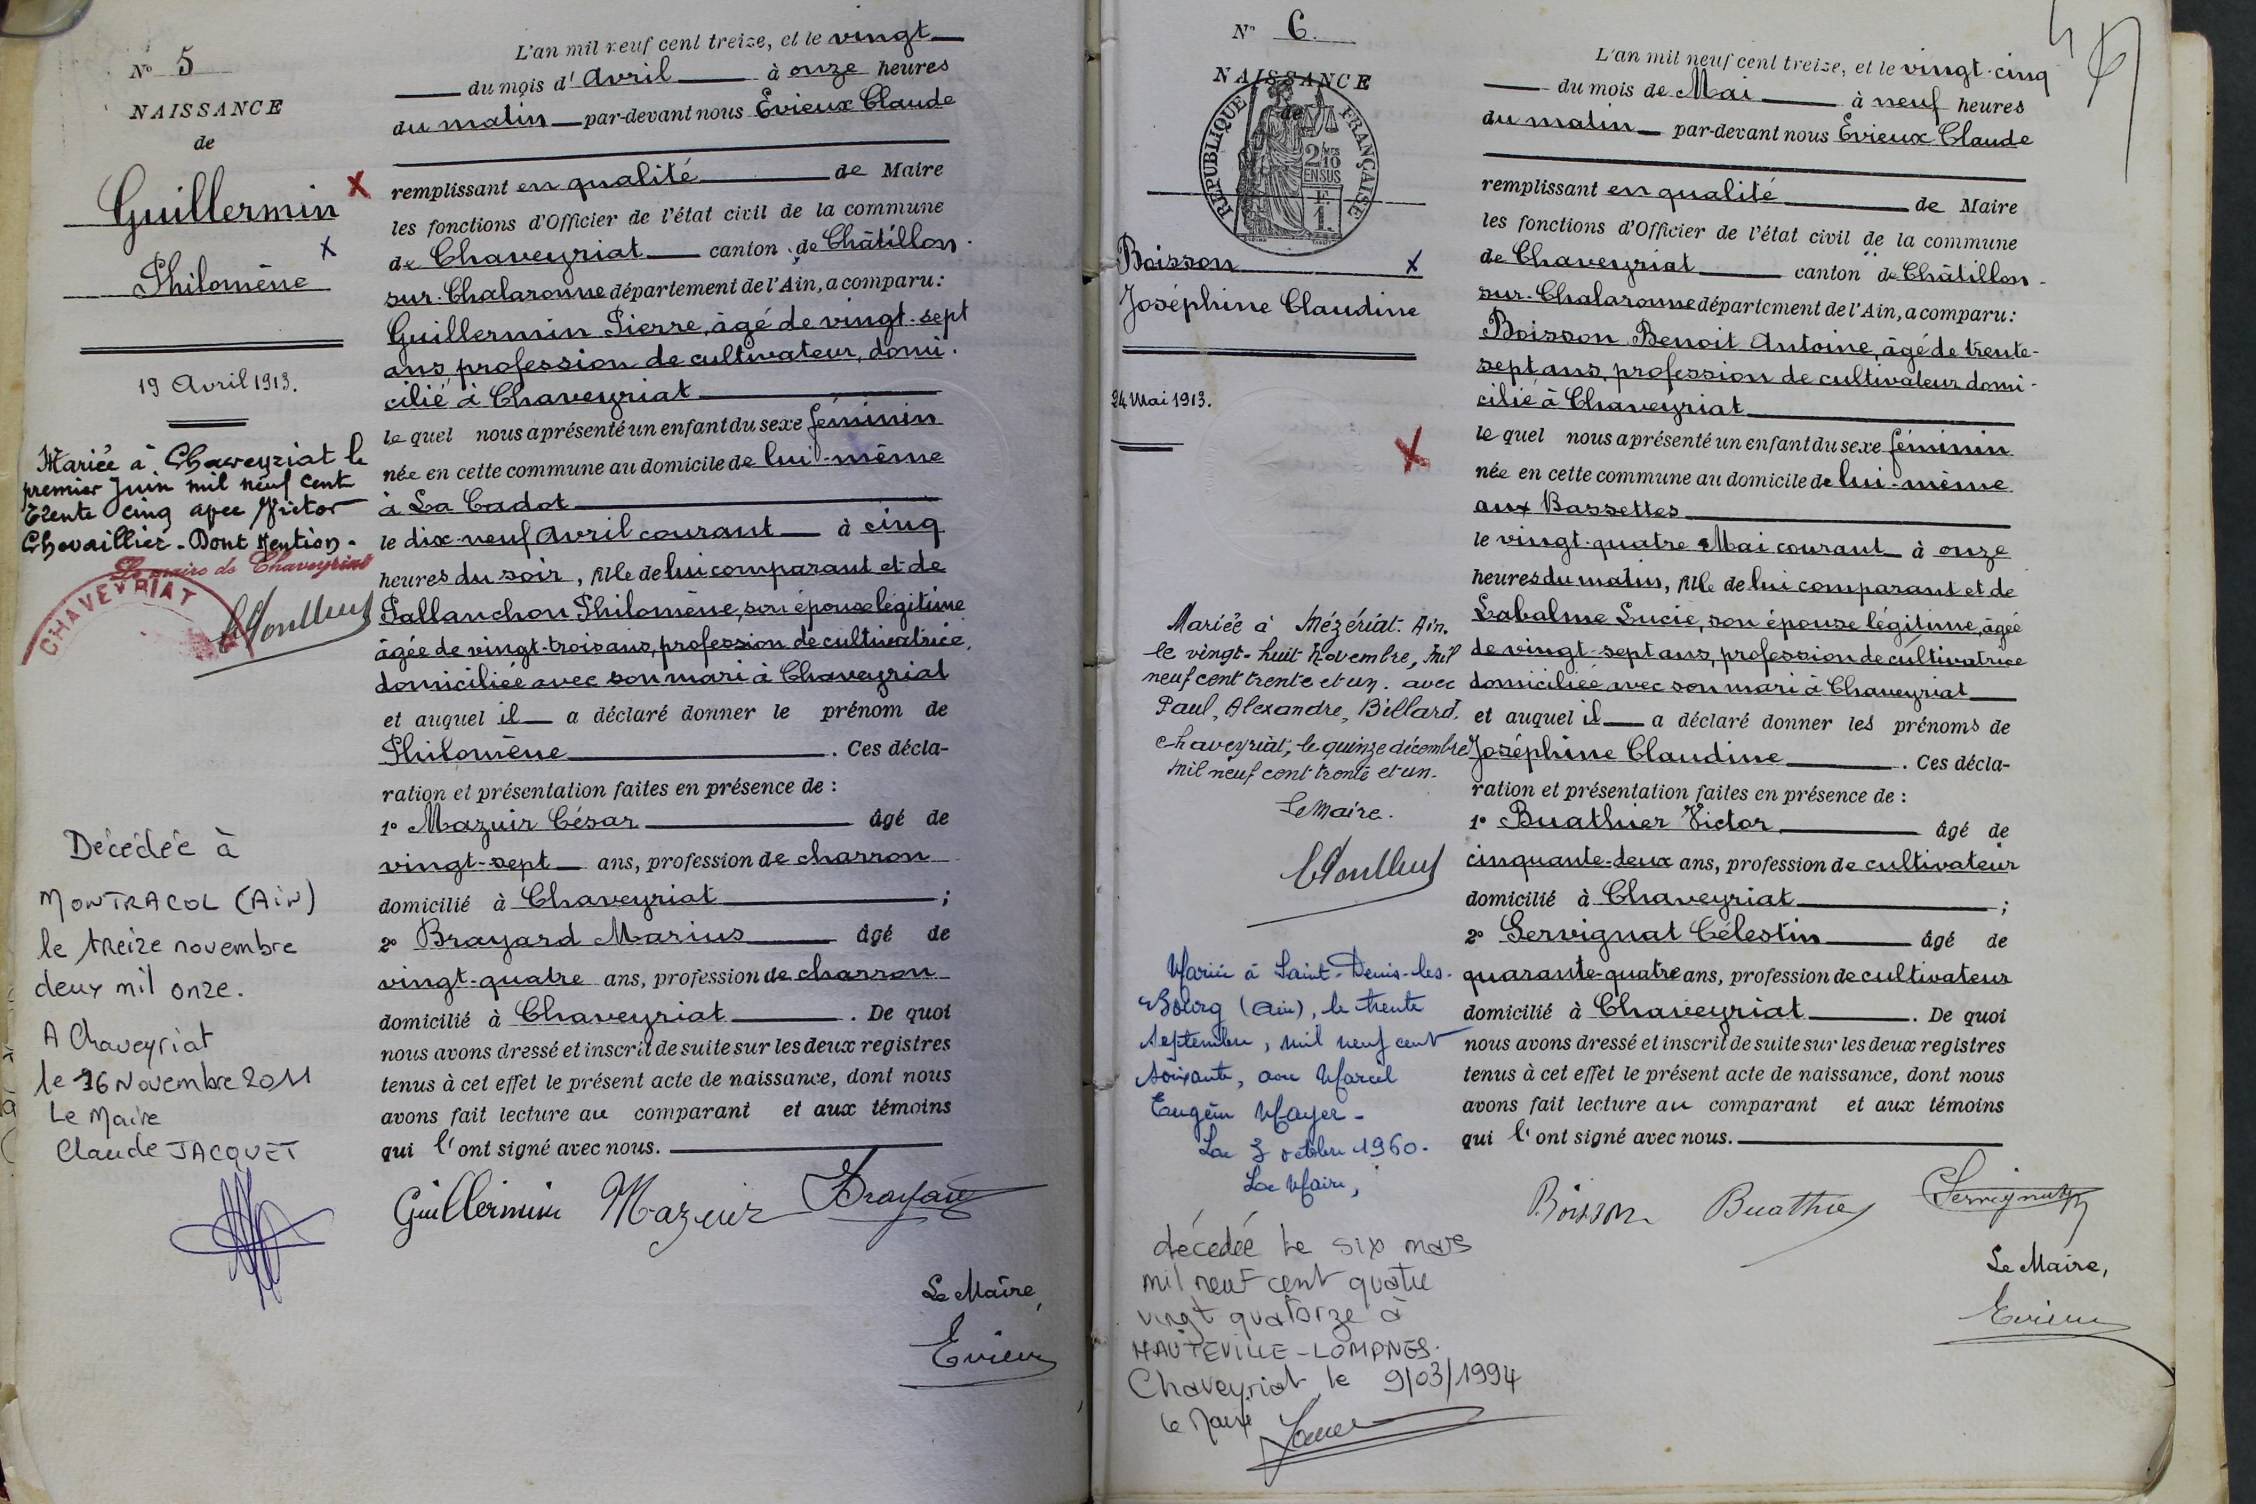 N° 5
NAISSANCE
de
Guillermin
Philomène
19 Avril 1913.
Mariée à Chaveyriat le
premier Juin mil neuf cent
trente cinq avec Victor
Chevaillier - Dont Mention -
Le maire de Chaveyriat
CHAVEYRIAT
Décédée à
MONTRACOL (Ain)
le treize novembre
deux mil onze.
A Chaveyriat
le 16 Novembre 2011
Le Maire
Claude JACQUET
L'an mil neuf cent treize, et le vingt
du mois d'Avril à onze heures
du matin par-devant nous Evieux Claude
remplissant en qualité de Maire
les fonctions d'Officier de l'état civil de la commune
de Chaveyriat canton de Châtillon-
sur-Chalaronne département de l'Ain, a comparu:
Guillermin Pierre, âgé de vingt-sept
ans, profession de cultivateur, domi-
cilié à Chaveyriat
le quel nous a présenté un enfant du sexe féminin
née en cette commune au domicile de lui-même
à La Cadot
le dix-neuf Avril courant à cinq
heures du soir, fille de lui comparant et de
Pallanchon Philomène, son épouse légitime
âgée de vingt-trois ans, profession de cultivatrice,
domiciliée avec son mari à Chaveyriat
et auquel il a déclaré donner le prénom de
Philomène. Ces décla-
ration et présentation faites en présence de :
1° Mazuir César âgé de
vingt-sept ans, profession de charron
domicilié à Chaveyriat ;
2° Brayard Marius âgé de
vingt-quatre ans, profession de charron
domicilié à Chaveyriat. De quoi
nous avons dressé et inscrit de suite sur les deux registres
tenus à cet effet le présent acte de naissance, dont nous
avons fait lecture au comparant et aux témoins
qui l'ont signé avec nous.
Guillermin Mazuir Brayard
Le Maire,
Evieux
N° 6.
NAISSANCE
de
REPUBLIQUE FRANÇAISE
2/10 MES
EN SUS
F.
1.
Boisson
Joséphine Claudine
24 Mai 1913.
Mariée à Mézériat. Ain.
le vingt-huit novembre, mil
neuf cent trente et un. avec
Paul, Alexandre, Billard.
Chaveyriat, le quinze décembre
mil neuf cent trente et un.
Le Maire.
Mariée à Saint-Denis-les-
Bourg (Ain), le trente
Septembre, mil neuf cent
soixante, avec Marcel
Eugène Mayer -
Le 3 octobre 1960.
Le Maire,
décédée le six mars
mil neuf cent quatre
vingt quatorze à
HAUTEVILLE-LOMPNES.
Chaveyriat le 9/03/1994
Le Maire
L'an mil neuf cent treize, et le vingt-cinq
du mois de Mai à neuf heures
du matin par-devant nous Evieux Claude
remplissant en qualité de Maire
les fonctions d'Officier de l'état civil de la commune
de Chaveyriat canton de Châtillon-
sur-Chalaronne département de l'Ain, a comparu:
Boisson Benoit Antoine, âgé de trente-
sept ans, profession de cultivateur domi-
cilié à Chaveyriat
le quel nous a présenté un enfant du sexe féminin
née en cette commune au domicile de lui-même
aux Bassettes
le vingt-quatre Mai courant à onze
heures du matin, fille de lui comparant et de
Labalme Lucie, son épouse légitime, âgée
de vingt-sept ans, profession de cultivatrice
domiciliée avec son mari à Chaveyriat
et auquel il a déclaré donner les prénoms de
Joséphine Claudine. Ces décla-
ration et présentation faites en présence de :
1° Buathier Victor âgé de
cinquante-deux ans, profession de cultivateur
domicilié à Chaveyriat ;
2° Servignat Célestin âgé de
quarante-quatre ans, profession de cultivateur
domicilié à Chaveyriat. De quoi
nous avons dressé et inscrit de suite sur les deux registres
tenus à cet effet le présent acte de naissance, dont nous
avons fait lecture au comparant et aux témoins
qui l'ont signé avec nous.
Boisson Buathier Servignat
Le Maire,
Evieux